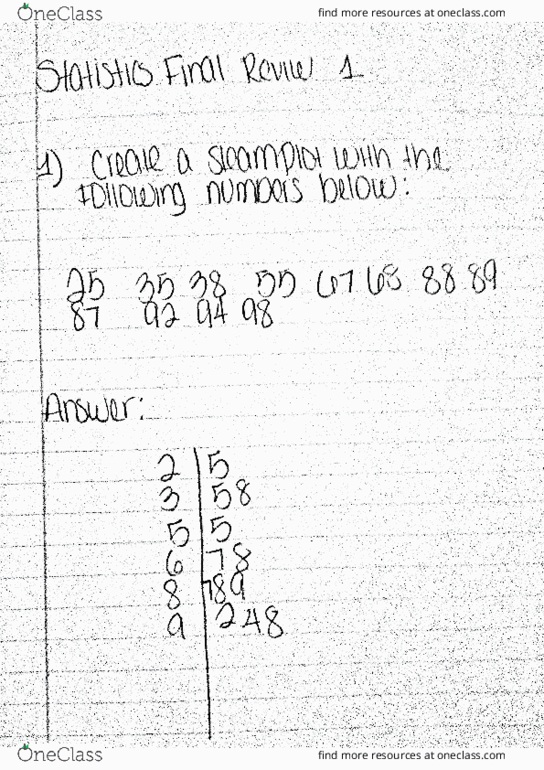 OneClass
find more resources at oneclass.com
Statistics Final Review 1
1) Create a steamplot with the
following numbers below:
25 35 38 55 67 68 88 89
87 92 94 98
Answer:
2 | 5
3 | 58
5 | 5
6 | 78
8 | 789
9 | 248
OneClass
find more resources at oneclass.com